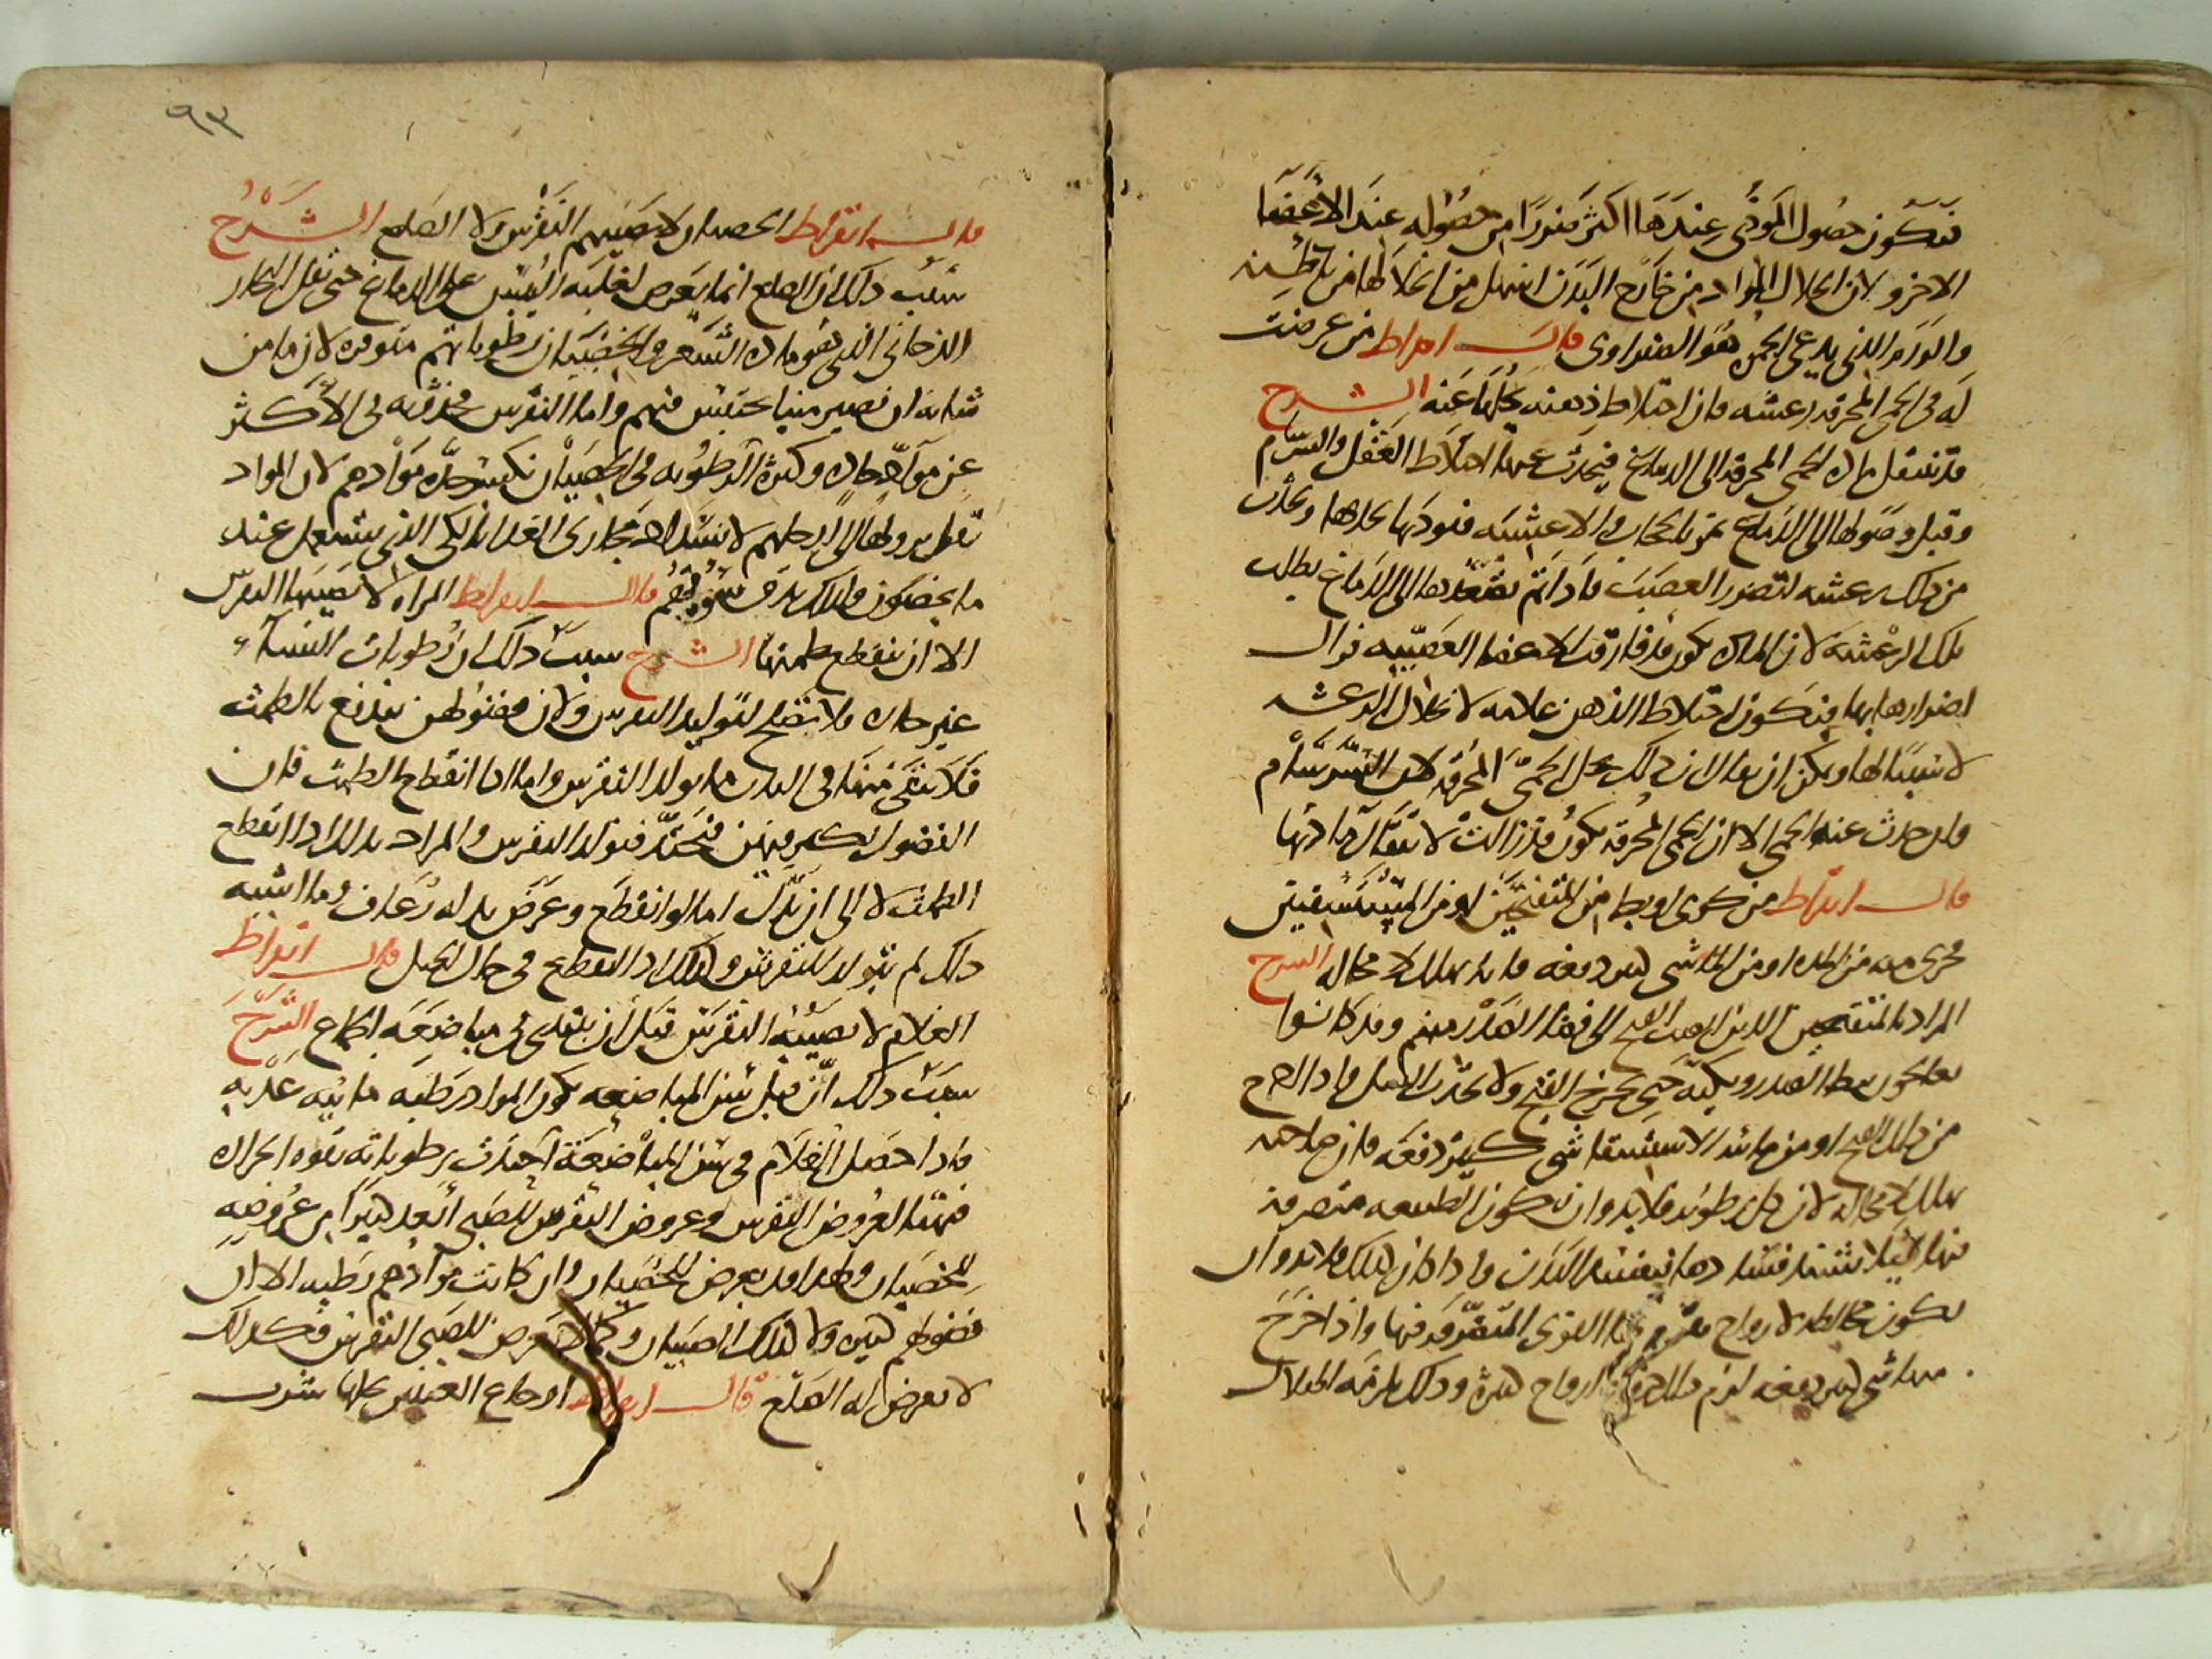 فتكون حصول المؤذي عندها اكثر ضررا من حصوله عند الاعضا
الاخر ولان انحلال المواد من خارج البدن اسهل من انحلالها من باطنه
والورم الذي يدعى الحمرة هو الصفراوى قال ابقراط من عرضت
له فى الحمى المحرقة رعشة فان اختلاط ذهنه يحلها عنه الشرح
قد تنتقل مادة الحمى المحرقة الى الدماغ فيحدث عنها اختلاط العقل والسرسام
وقبل وصولها الى الدماغ تمر بالحجاب والاغشية فتوذيها بحدتها ويحدث
من ذلك رعشة لتضرر العصب فاذا تم تصعدها الى الدماغ بطلت
تلك الرعشة لان المادة تكون قد فارقت الاعضا العصبية فزال
اضرارها بها فيكون اختلاط الذهن علامة لانحلال الرعشة
لا سببا لها ويمكن ان يقال ان ذلك يحل الحمى المحرقة لان السرسام
وان حدث عنه الحمى الا ان الحمى المحرقة تكون قد زالت لانتقال مادتها
قال ابقراط من كوى او بط من المتقيحين او من المستسقين
فجرى منه من المدة او من الماء شى كثير دفعة فانه يهلك لا محالة الشرح
المراد بالمتقيحين الذين انصب القيح الى فضا الصدر منهم وقد كانوا
يعالجون ببط الصدر وبكيه حتى يخرج القيح ولا يحدث السل فاذا خرج
من ذلك القيح او من مائية الاستسقا شى كثير دفعة فان صاحبه
يهلك لا محالة لان كل رطوبة فلا بد وان تكون الطبيعة متصرفة
فيها لئلا يشتد فسادها فيفسد البدن واذا كان كذلك فلا بد وان
تكون مخالطة لارواح تقوم بها القوى المتصرفة فيها واذا خرج
منها شى كثير دفعة لزم ذلك خروج ارواح كثيرة وذلك يلزمه الهلاك
٩٣
قال ابقراط الخصيان لا يصيبهم النقرس ولا الصلع الشرح
سبب ذلك ان الصلع انما يعرض لغلبة اليبس على الدماغ حتى تقل البخار
الدخانى الذى هو مادة الشعر والخصيان رطوباتهم متوفرة لان ما من
شانه ان يصير منيا يحتبس فيهم واما النقرس فحدوثه فى الاكثر
عن مواد حادة وكثرة الرطوبة فى الخصيان تكسر حدة موادهم لان المواد
تقل نزولها الى ارجلهم لانسداد مجارى الغذا بالكى الذى يستعمل عند
ما يخصون ولذلك تدق سوقهم قال ابقراط المراة لا يصيبها النقرس
الا ان ينقطع طمثها الشرح سبب ذلك ان رطوبات النساء
غير حادة فلا تصلح لتوليد النقرس ولان فضولهن تندفع بالطمث
فلا يبقى منها فى البدن ما يولد النقرس واما اذا انقطع الطمث فان
الفضول تكثر فيهن فتحتد فتولد النقرس والمراد بذلك اذا انقطع
الطمث لا الى ان بدل اما لو انقطع وعرض بدله رعاف وما اشبه
ذلك لم يتولد النقرس وكذلك اذا انقطع فى حال الحبل قال ابقراط
الغلام لا يصيبه النقرس قبل ان يبتدى فى مباضعة الجماع الشرح
سبب ذلك ان قبل سن المباضعة تكون المواد رطبة مائية عذبة
فاذا حصل الغلام فى سن المباضعة احتدت رطوباته بقوة الحرارة
فتهيأ لعروض النقرس وعروض النقرس للصبى ابعد كثيرا من عروضه
للخصيان ولهذا قد يعرض للخصيان وان كانت موادهم رطبة الا ان
فضولهم كثيرة ولا كذلك الصبيان وكما لا يعرض للصبى النقرس فكذلك
لا يعرض له الصلع قال ابقراط اوجاع العينين يحلها شرب